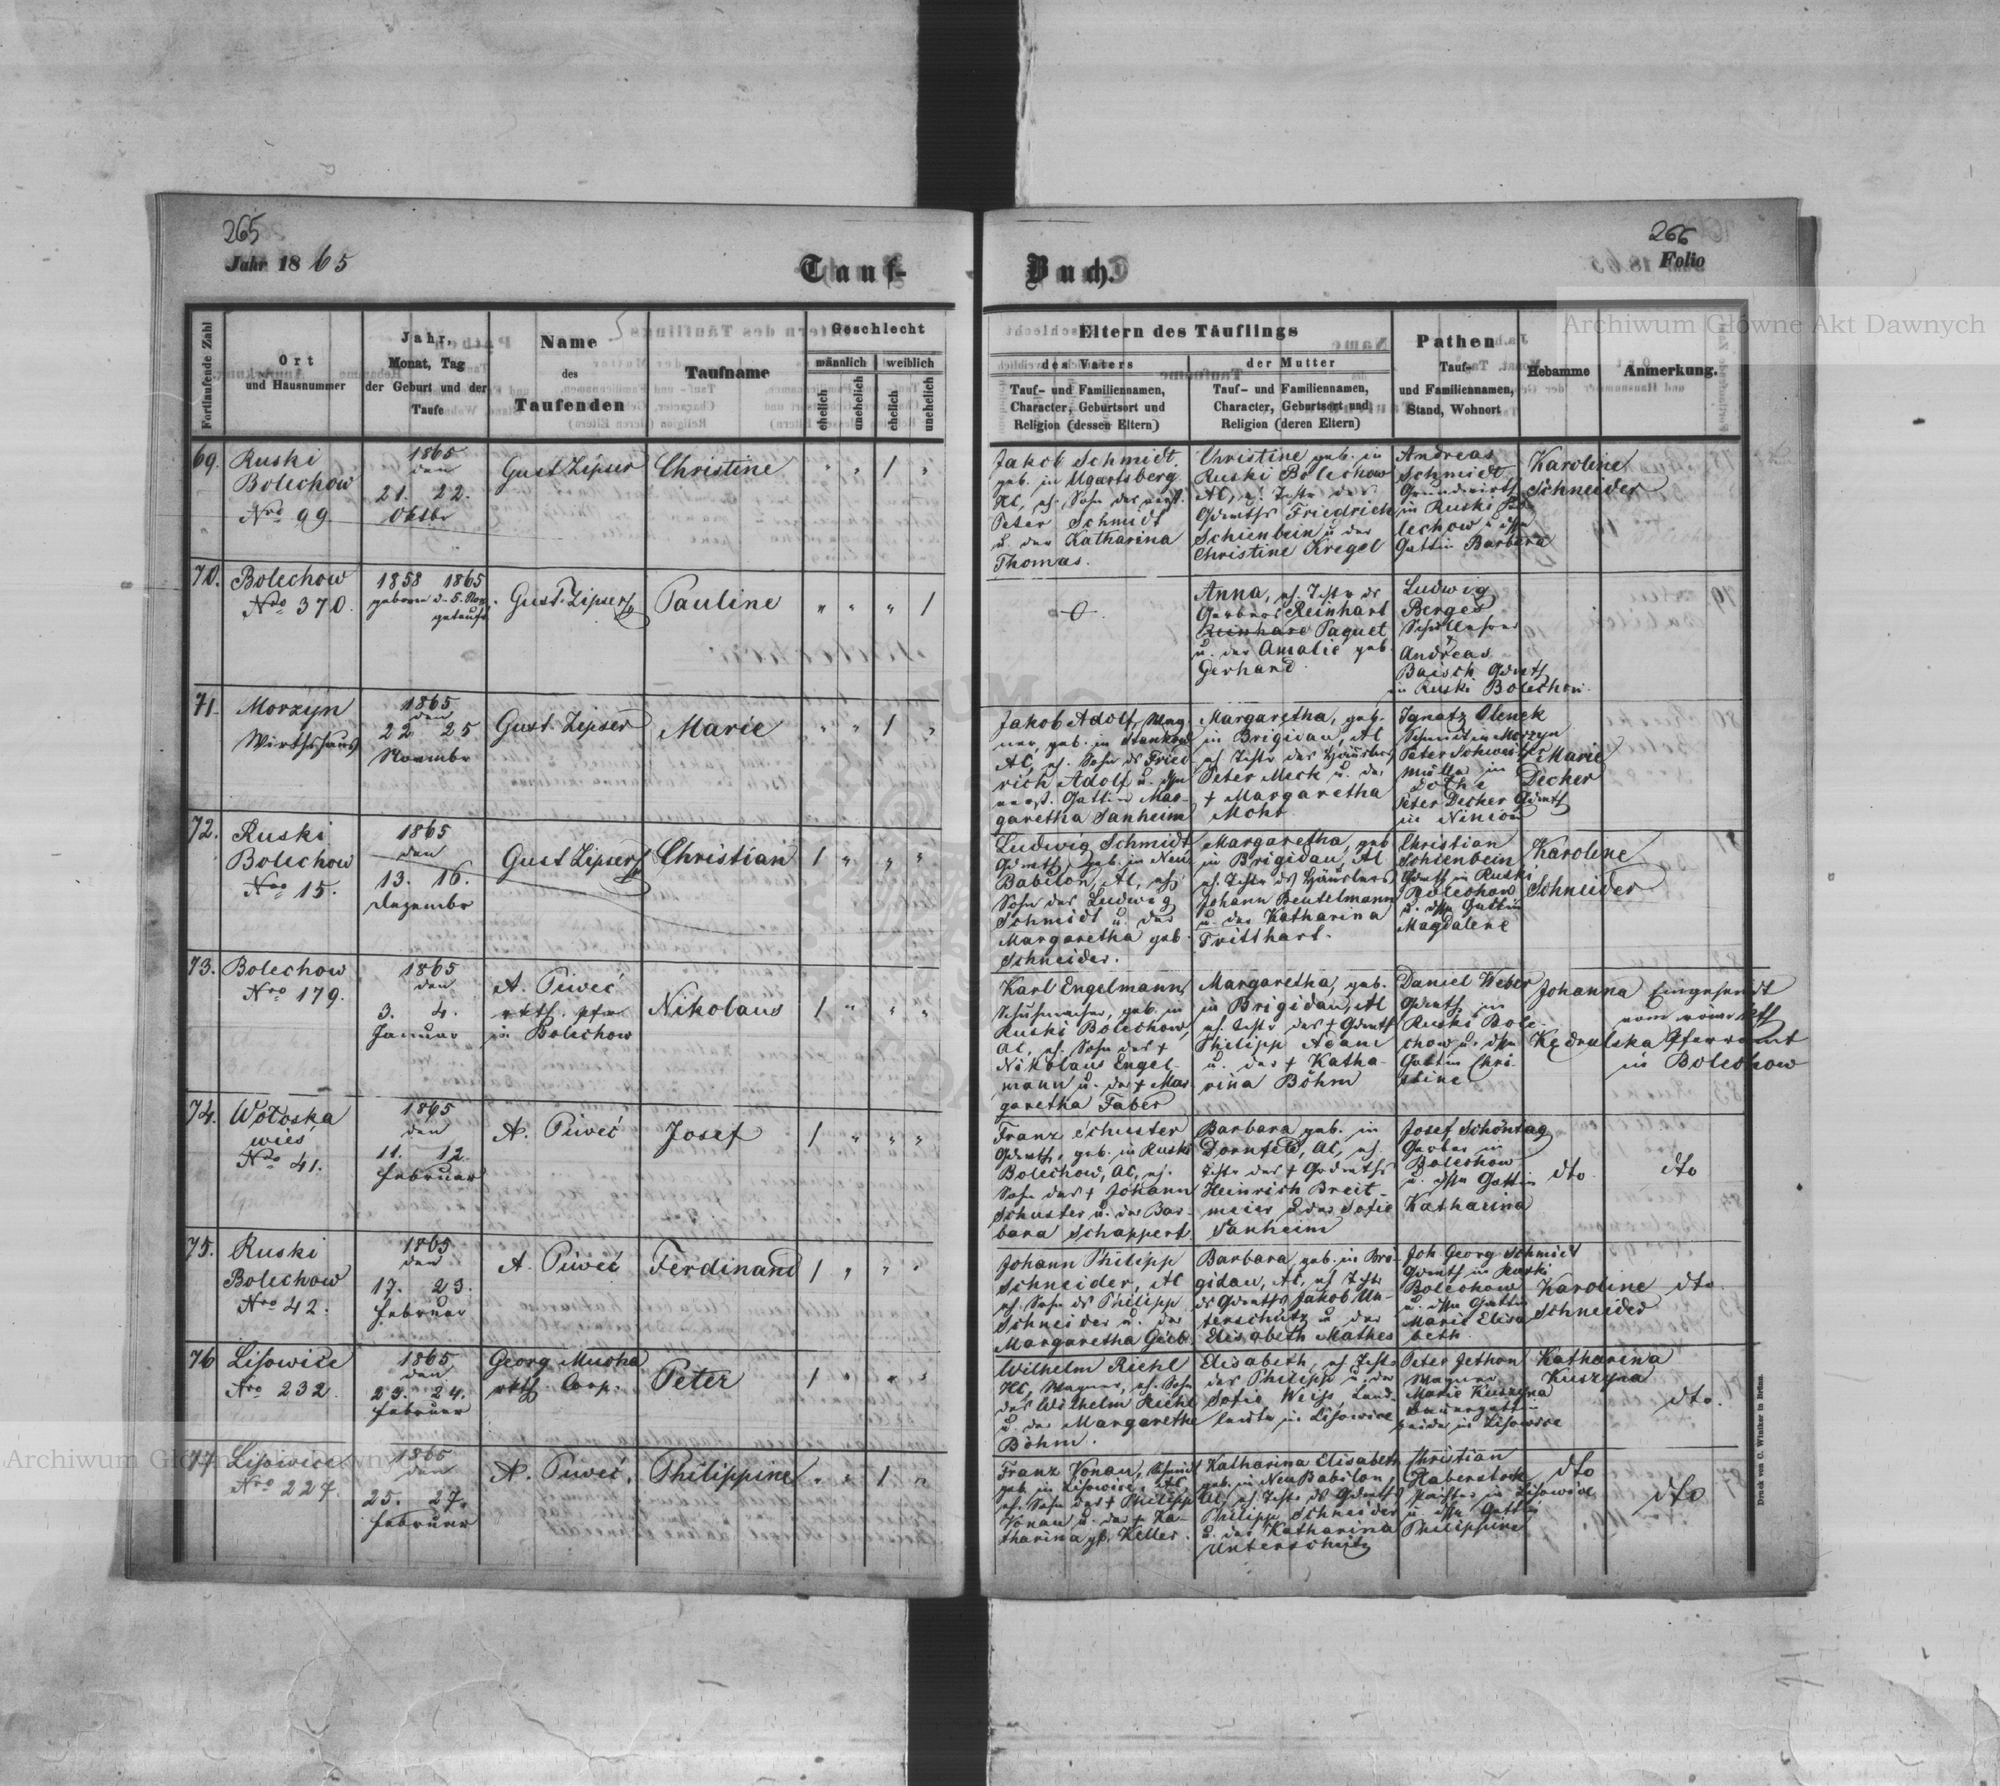 265
Jahr 1865
Tauf-
Buch.
266
Folio
Archiwum Główne Akt Dawnych
Fortlaufende Zahl
Ort
und Hausnummer
Jahr,
Monat, Tag
der Geburt und der
Taufe
Name
des
Taufenden
Taufname
Geschlecht
männlich
weiblich
ehelich
unehelich
ehelich
unehelich
Eltern des Täuflings
des Vaters
Tauf- und Familiennamen,
Character, Geburtsort und
Religion (dessen Eltern)
der Mutter
Tauf- und Familiennamen,
Character, Geburtsort und
Religion (deren Eltern)
Pathen
Tauf-
und Familiennamen,
Stand, Wohnort
Hebamme
Anmerkung.
69.
Ruski
Bolechow
Nro 99
1865
den
21. 22.
Oktbr
Gust Zipser
Christine
" " 1 "
Jakob Schmidt
geb. in Ugartsberg
AC, eh. Sohn des verst.
Peter Schmidt
u. der Katharina
Thomas.
Christine geb. in
Ruski Bolechow
AC, eh. Tochtr des
Gdwths Friedrich
Schienbein u. der
Christine Kregel
Andreas
Schmidt
Grundwirth
in Ruski Bo-
lechow u. dssn
Gattin Barbara
Karoline
Schneider
70.
Bolechow
Nro 370.
1858 1865
geboren d. 5. Nov.
getauft
Gust. Zipser
Pauline
" " " 1
Anna, eh. Tchtr ds
Gerbers Reinhart
Reinhard Paquet
u. der Amalie geb.
Gerhard.
Ludwig
Berges
Schullehrer
Andreas
Baisch Gdwth
in Ruski Bolechow.
71.
Morzyn
Wirthshaus
1865
den
22 25.
Novembr
Gust. Zipser
Marie
" " 1 "
Jakob Adolf, Wag-
ner, geb. in Stankow
AC, eh. Sohn ds Fried
rich Adolf u. dssn
verst. Gattin Mar-
garetha Sanheim
Margaretha, geb.
in Brigidau, AC
eh Tchtr des Häuslers
Peter Meck u. der
† Margaretha
Mohr
Ignatz Olenek
Schmid in Morzyn
Peter Schwester
Müller in
Peter Decker Gdwth
in Ninion
Marie
Decker
72.
Ruski
Bolechow
Nro 15.
1865
den
13. 16.
Dezembr
Gust Zipser
Christian
1 " " "
Ludwig Schmidt
Gdwth, geb. in Neu
Babilon, AC, eh.
Sohn des Ludwig
Schmidt u. der
Margaretha geb.
Schneider.
Margaretha, geb
in Brigidau, AC
eh. Tchtr ds Häuslers
Johann Beutelmann
u. der Katharina
Tritthart.
Christian
Schienbein
Gdwth in Ruski
Bolechow
u. dssn Gattin
Magdalene
Karoline
Schneider
73.
Bolechow
Nro 179.
1865
den
3. 4.
Januar
A. Piweć
rkth. Pfr
in Bolechow
Nikolaus
1 " " "
Karl Engelmann
Schuhmacher, geb. in
Ruski Bolechow,
AC, eh. Sohn des †
Nikolaus Engel-
mann u. der † Mar
garetha Faber
Margaretha, geb.
in Brigidau, AC
eh. Tchtr des † Gdwth
Philipp Adam
u. der † Katha-
rina Böhm
Daniel Weber
Gdwth in
Ruski Bole-
chow u. dssn
Gattin Chri-
stine
Johanna
Kędrulska
Eingesendt
vom röm. kth
Pfarramt
in Bolechow
74.
Wołoska
wieś
Nro 41.
1865
den
11. 12.
Februar
A. Piweć
Josef
1 " " "
Franz Schuster
Gdwth, geb. in Ruski
Bolechow, AC, eh.
Sohn des † Johann
Schuster u. der Bar-
bara Schappert.
Barbara geb. in
Dornfeld, AC, eh.
Tchtr des † Grdwths
Heinrich Breit-
meier u. der Sofie
Sanheim
Josef Schöntag
Gerber in
Bolechow
u. dssn Gattin
Katharina
dto
dto
75.
Ruski
Bolechow
Nro 42.
1865
den
17. 23.
Februar
A. Piweć
Ferdinand
1 " " "
Johann Philipp
Schneider, AC
eh. Sohn ds Philipp
Schneider u. der
Margaretha Gieb.
Barbara, geb. in Bri-
gidau, AC, eh Tchtr
ds Gdwths Jakob Un-
terschütz u. der
Elisabeth Mathes
Joh Georg Schmidt
Gdwth in Ruski
Bolechow
u. dssn Gattin
Marie Elisa
beth
Karoline
Schneider
dto.
76
Lisowice
Nro 232.
1865
den
23. 24.
Februar
Georg Mucha
rkth Coop.
Peter
1 " " "
Wilhelm Riehl
HC, Wagner, eh. Sohn
des Wilhelm Riehl
u. der Margarethe
Böhm.
Elisabeth, eh Tchtr
des Philipp u. der
Sofie Weiss, Land-
leute in Lisowice
Peter Jethon
Wagner
Marie Kuszyna
Bauergattin
beide in Lisowice
Katharina
Kuszyna
dto.
77
Lisowice
Nro 227.
1865
den
25. 27.
Februar
A. Piweć.
Philippine
" " 1 "
Franz Vonau, Schmid
geb. in Lisowice, AC
eh. Sohn des † Philipp
Vonau u. der † Ka-
tharina gb. Keller.
Katharina Elisabeth
geb. in Neu Babilon,
AC, eh. Tchtr ds Gdwth
Philipp Schneider
u. der Katharina
Unterschütz
Christian
Haberstock
Pächter in Lisowice
u. dssn Gattin
Philippine
dto
dto
Druck von C. Winiker in Brünn.
Archiwum Główne Akt Dawnych